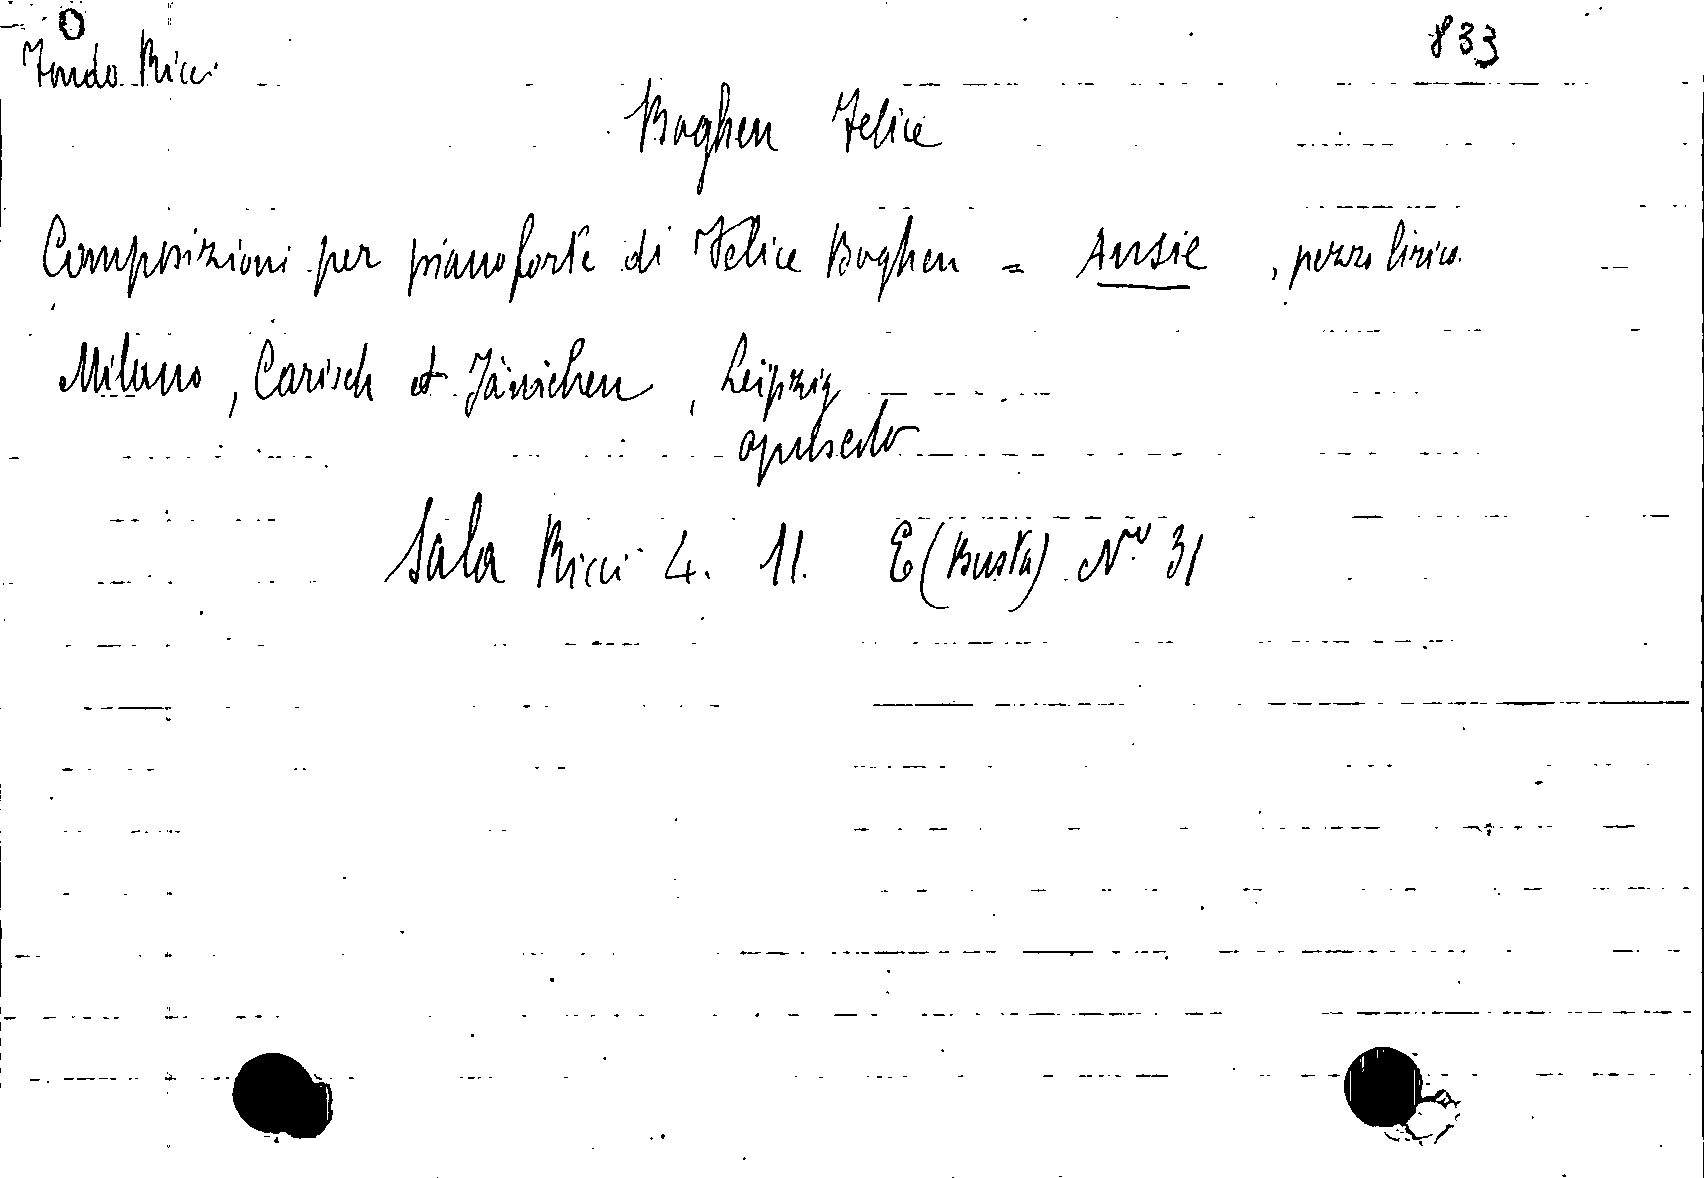 O
Fondo Ricci
833
Boghen Felice
Composizioni per pianoforte di Felice Boghen = Ansie, pezzo lirico.
Milano, Carisch et Jänichen, Leipzig
opuscolo
Sala Ricci 4. 11. E (Busta) N.º 31